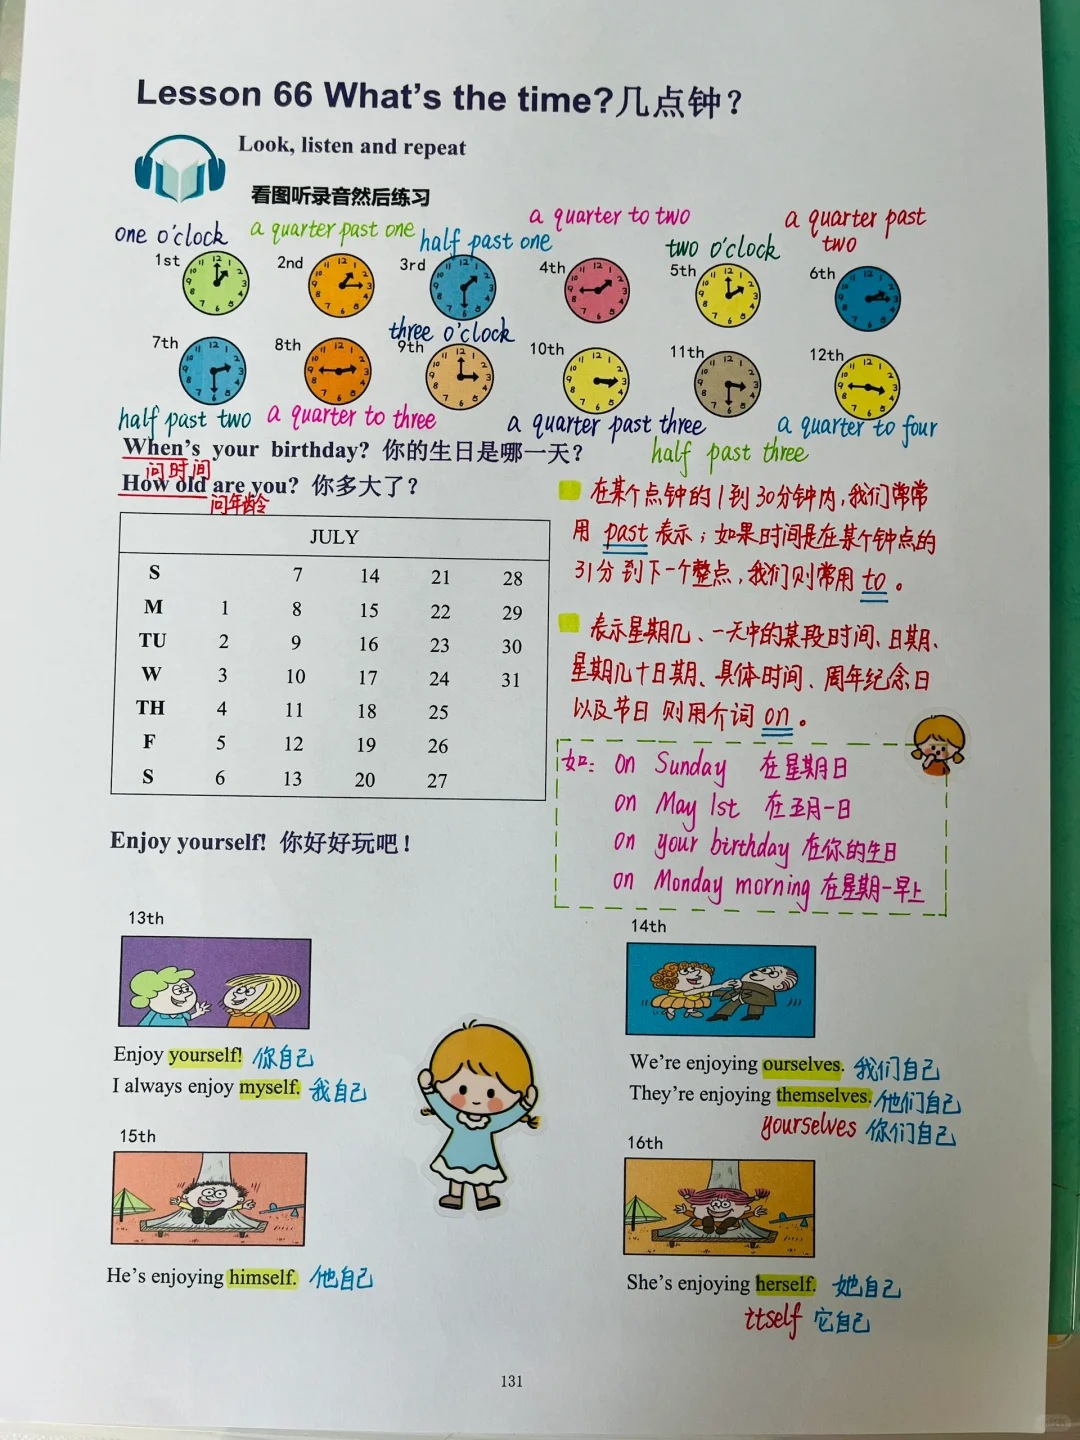 Lesson 66 What's the time?几点钟？
Look, listen and repeat
看图听录音然后练习
one o'clock
a quarter past one
half past one
a quarter to two
two o'clock
a quarter past
two
1st
2nd
3rd
4th
5th
6th
three o'clock
7th
8th
9th
10th
11th
12th
half past two
a quarter to three
a quarter past three
half past three
a quarter to four
When's your birthday? 你的生日是哪一天？
问时间
How old are you? 你多大了？
问年龄
JULY
S 7 14 21 28
M 1 8 15 22 29
TU 2 9 16 23 30
W 3 10 17 24 31
TH 4 11 18 25
F 5 12 19 26
S 6 13 20 27
在某个点钟的1到30分钟内,我们常常
用 past 表示；如果时间是在某个钟点的
31分到下一个整点,我们则常用 to 。
表示星期几、一天中的某段时间、日期、
星期几十日期、具体时间、周年纪念日
以及节日 则用介词 on 。
如: on Sunday 在星期日
on May 1st 在五月一日
on your birthday 在你的生日
on Monday morning 在星期一早上
Enjoy yourself! 你好好玩吧！
13th
Enjoy yourself! 你自己
I always enjoy myself. 我自己
14th
We're enjoying ourselves. 我们自己
They're enjoying themselves. 他们自己
yourselves 你们自己
15th
He's enjoying himself. 他自己
16th
She's enjoying herself. 她自己
itself 它自己
131